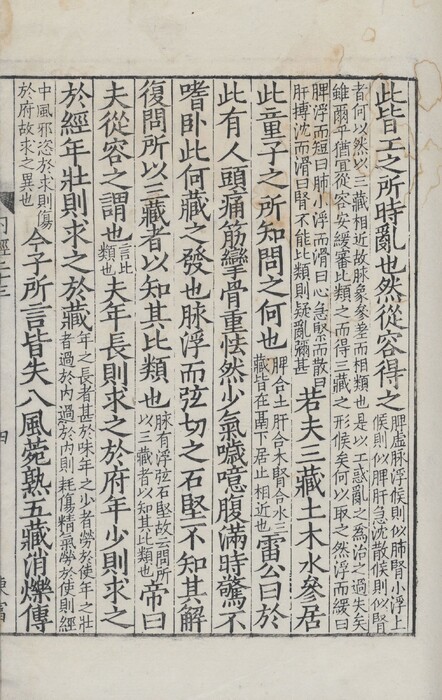 此皆工之所時亂也然從容得之脾虛脉浮候則似肺腎小浮上候則似脾肝急沈散候則似腎
者何以然以三藏相近故脉象參差而相類也是以工惑亂之為治之過失矣雖爾乎猶宜從容安緩審比類之而得三藏之形候矣何以取之然浮而緩曰
脾浮而短曰肺小浮而滑曰心急緊而散曰肝搏沈而滑曰腎不能比類則疑亂彌甚若夫三藏土木水參居
此童子之所知問之何也脾合土肝合木腎合水三藏皆在鬲下居止相近也雷公曰於
此有人頭痛筋攣骨重怯然少氣噦噫腹滿時驚不
嗜卧此何藏之發也脉浮而弦切之石堅不知其解
復問所以三藏者以知其比類也脉有浮弦石堅故云問所以三藏者以知其比類也帝曰
夫從容之謂也言比類也夫年長則求之於府年少則求之
於經年壯則求之於藏年之長者甚於味年之少者勞於使年之壯者過於內過於內則耗傷精氣勞於使則經
中風邪恣於求則傷於府故求之異也今子所言皆失八風菀熟五藏消爍傳
四